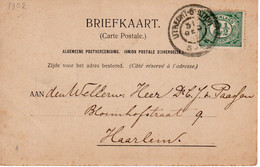 1902
BRIEFKAART.
(Carte Postale.)
ALGEMEENE POSTVEREENIGING. (UNION POSTALE UNIVERSELLE.)
Zijde voor het adres bestemd. (Côté réservé à l'adresse.)
UTRECHT
AAN den Weledelen Heer
Bloemhofstraat 9
Haarlem.